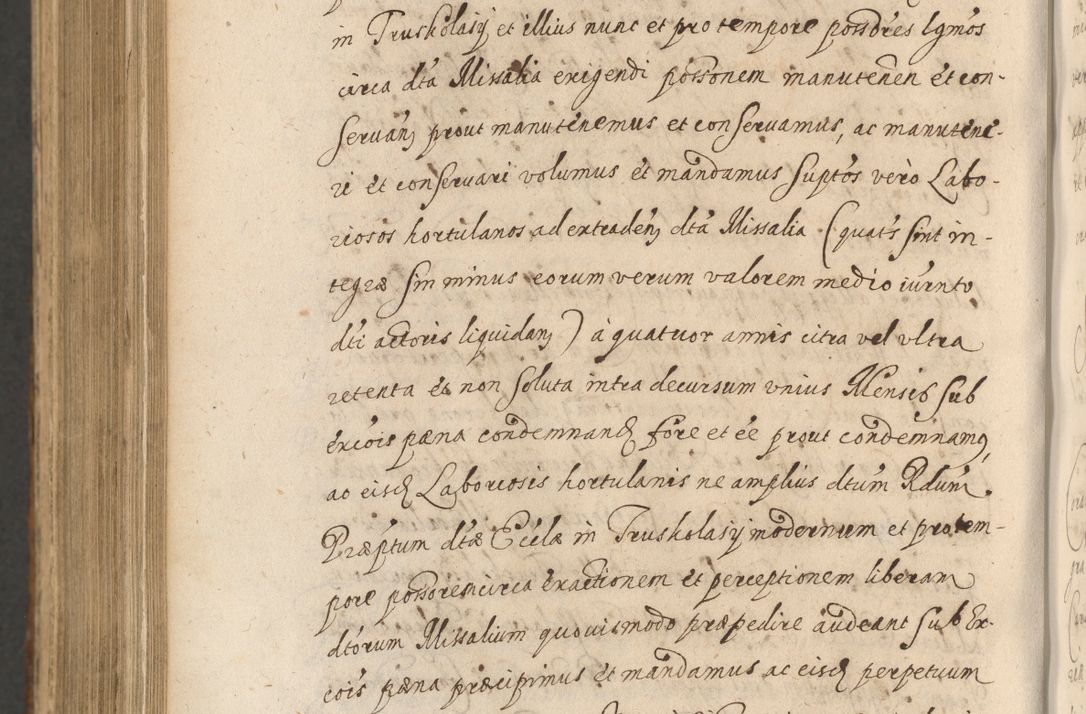 in Truskolasÿ et illius nunc et pro tempore possores lgmos
circa dta Missalia exigendi possonem manutenen et con-
servanꝫ prout manutenemus et conservamus, ac manutene-
ri et conservari volumus et mandamus suptos verò Labo-
riosos hortulanos ad extradenꝫ dta Missalia (quats sint in-
tegræ sin minus eorum verum valorem medio iurnto
dti actoris liquidanꝫ) à quatuor annis citra vel ultra
retenta et non soluta intra decursum unius Mensis sub
excois pæna condemnandꝫ fore et ee prout condemnamꝰ,
ac eisdꝫ Laboriosis hortulanis ne amplius dtum Rdum
Præptum dtæ Eccelæ in Truskolasÿ modernum et pro tem-
pore possorem circa exactionem et perceptionem liberam
dtorum Missalium quovismodo præpedire audeant sub Ex-
cois pæna præcipimus et mandamus ac eisdꝫ perpetuum